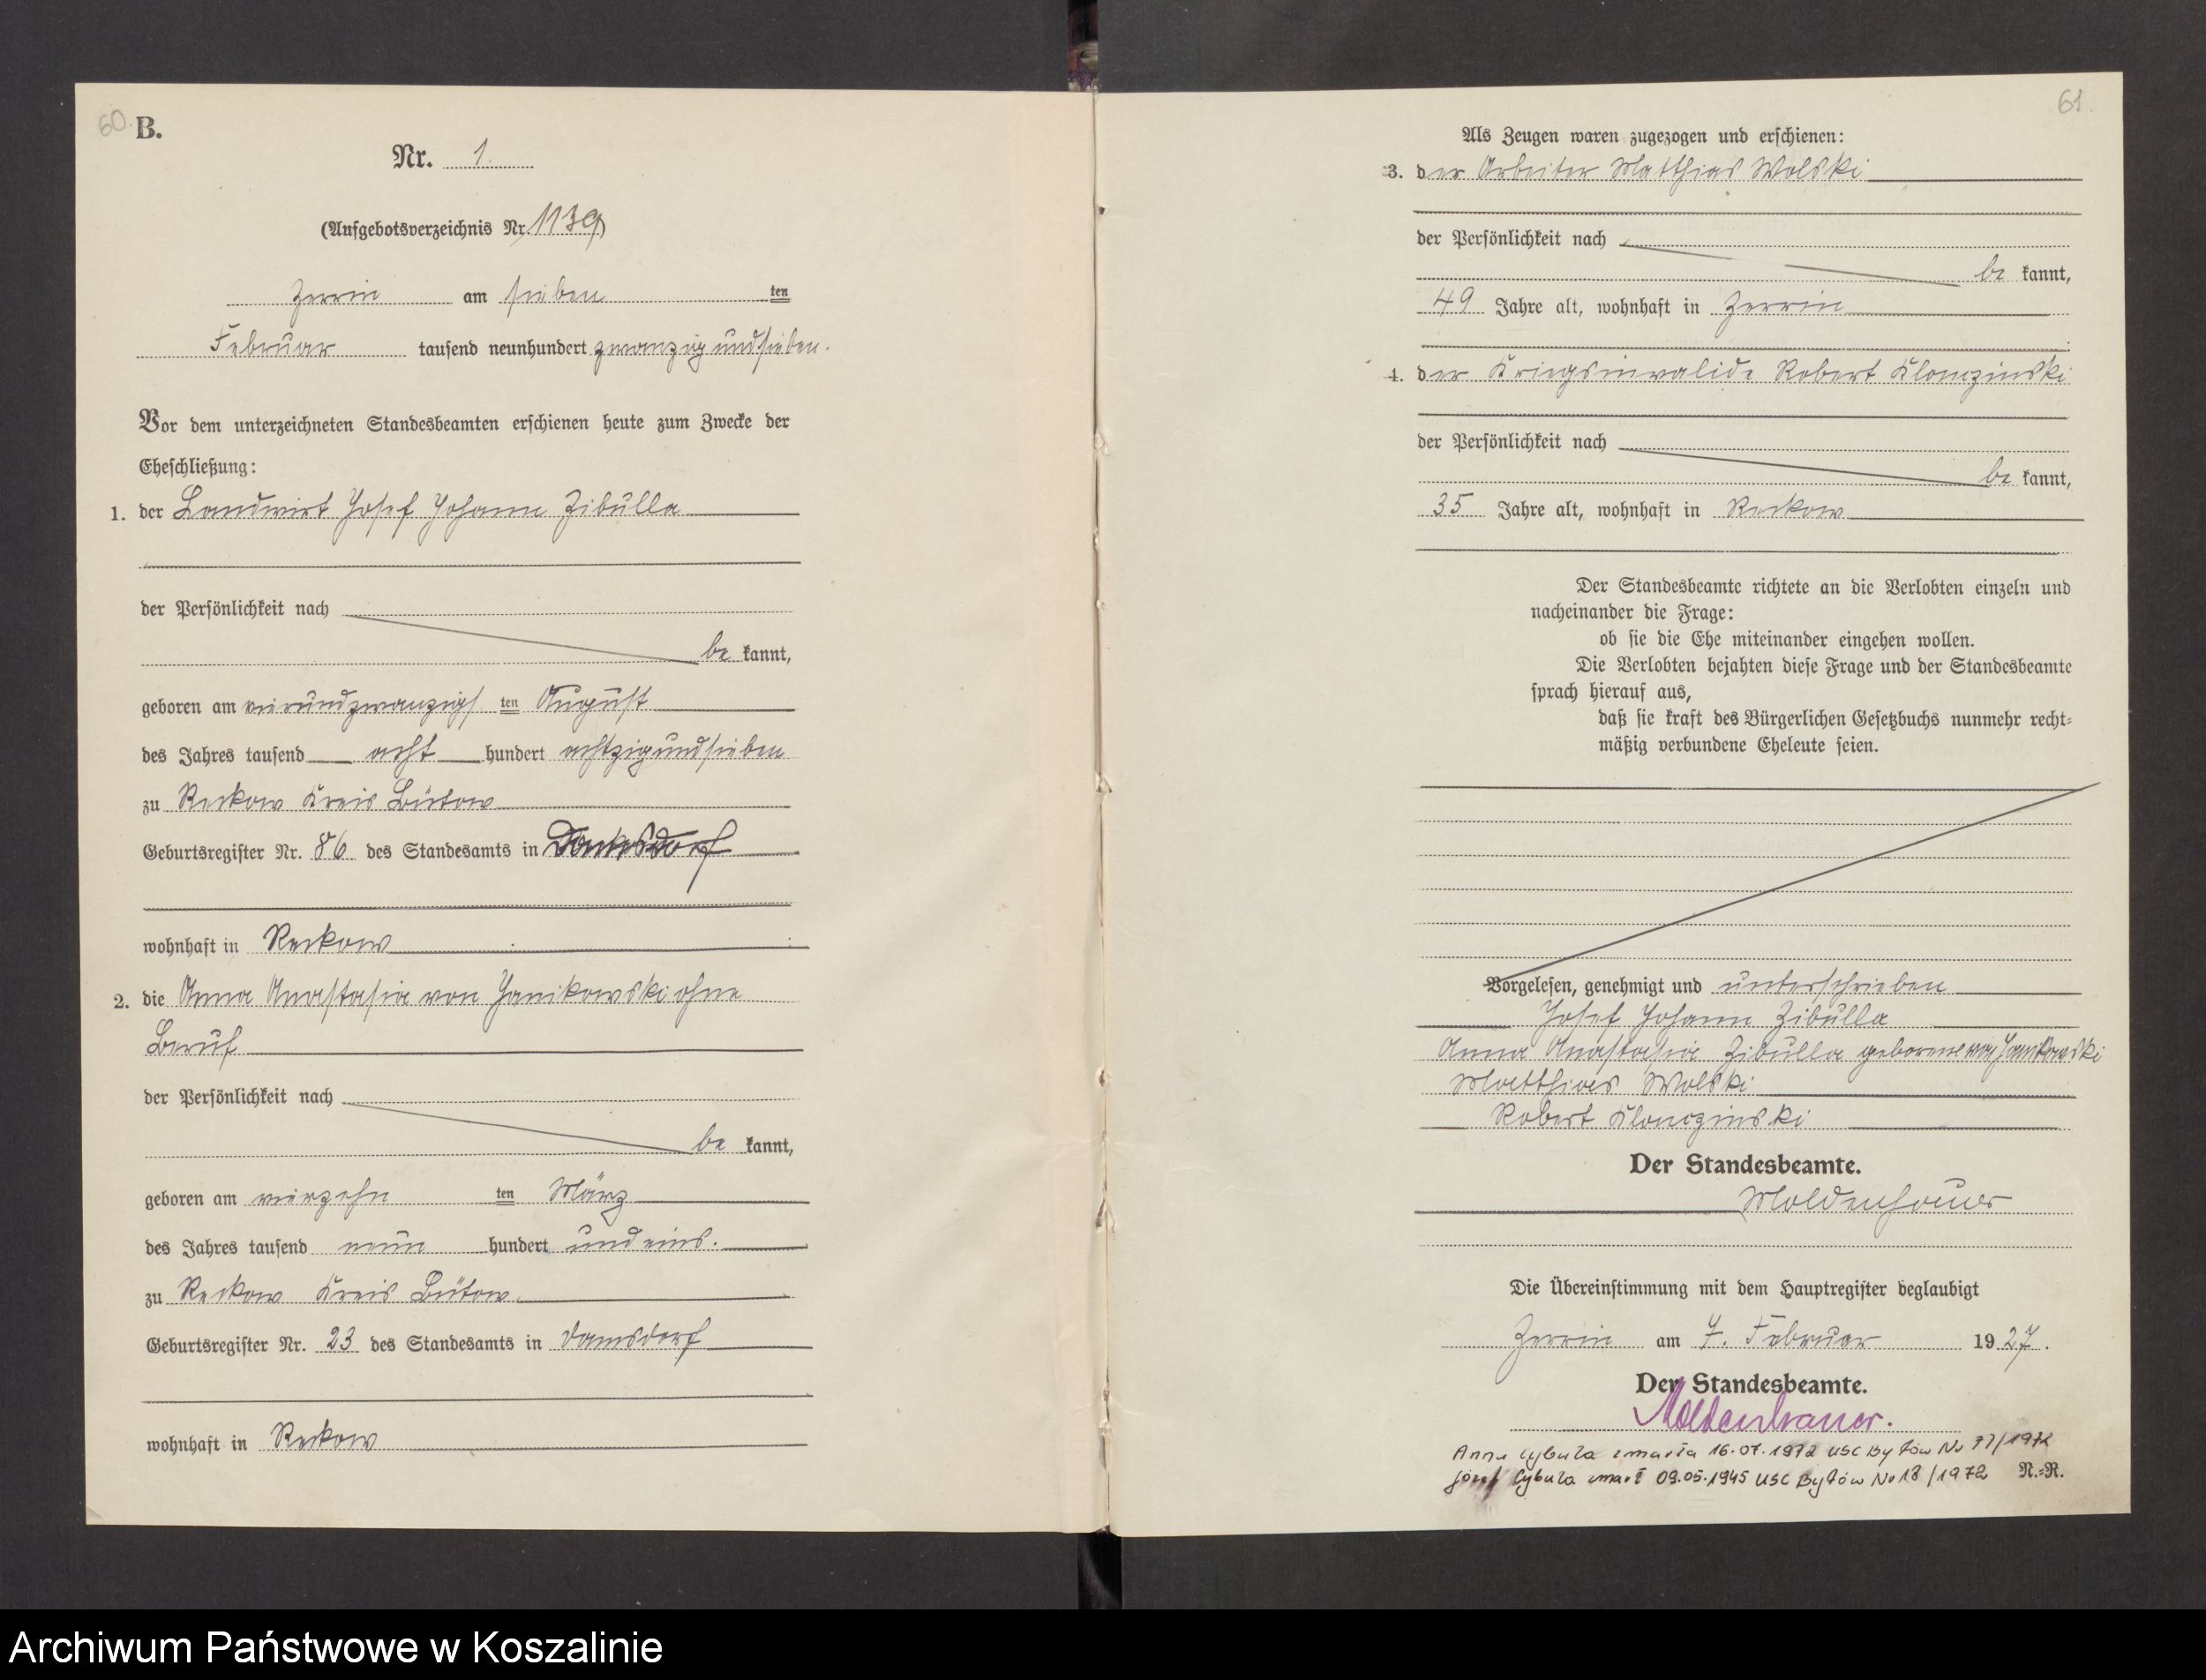 60.
B.
Nr. 1.
(Aufgebotsverzeichnis Nr. 1139)
Zerrin am sieben ten
Februar tausend neunhundert zwanzig und sieben.
Vor dem unterzeichneten Standesbeamten erschienen heute zum Zwecke der
Eheschließung:
1. der Landwirt Josef Johann Zibulla
der Persönlichkeit nach
be kannt,
geboren am vierundzwanzigs ten August
des Jahres tausend acht hundert achtzigundsieben
zu Reckow Kreis Bütow
Geburtsregister Nr. 86 des Standesamts in
wohnhaft in Reckow
2. die Anna Anastasia von Janikowski ohne
Beruf
der Persönlichkeit nach
be kannt,
geboren am vierzehn ten März
des Jahres tausend neun hundert und eins.
zu Reckow Kreis Bütow.
Geburtsregister Nr. 23 des Standesamts in Damsdorf
wohnhaft in Reckow
61.
Als Zeugen waren zugezogen und erschienen:
3. der Arbeiter Matthias Wolski
der Persönlichkeit nach
be kannt,
49 Jahre alt, wohnhaft in Zerrin
4. der Kriegsinvalide Robert Klonczinski
der Persönlichkeit nach
be kannt,
35 Jahre alt, wohnhaft in Reckow
Der Standesbeamte richtete an die Verlobten einzeln und
nacheinander die Frage:
ob sie die Ehe miteinander eingehen wollen.
Die Verlobten bejahten diese Frage und der Standesbeamte
sprach hierauf aus,
daß sie kraft des Bürgerlichen Gesetzbuchs nunmehr recht-
mäßig verbundene Eheleute seien.
Vorgelesen, genehmigt und unterschrieben
Josef Johann Zibulla
Anna Anastasia Zibulla geborene von Janikowski
Matthias Wolski
Robert Klonczinski
Der Standesbeamte.
Moldenhauer
Die Übereinstimmung mit dem Hauptregister beglaubigt
Zerrin am 7. Februar 1927.
Der Standesbeamte.
Moldenhauer.
Anna Cybula zmarła 16.07.1972 USC Bytów Nr 77/1972
Józef Cybula zmarł 09.05.1945 USC Bytów Nr 18/1972 N.-R.
Archiwum Państwowe w Koszalinie